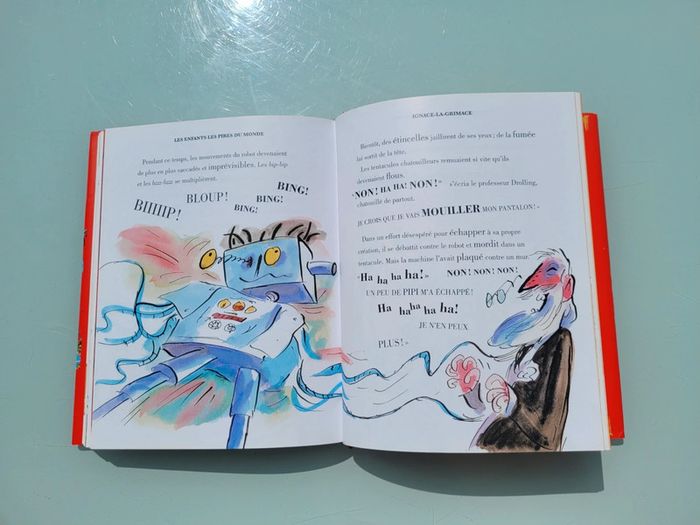 LES ENFANTS LES PIRES DU MONDE
Pendant ce temps, les mouvements du robot devenaient
de plus en plus saccadés et imprévisibles. Les bip-bip
et les bzzz-bzzz se multiplièrent.
BING!
BLOUP! BING!
BIIIIIP! BING!
IGNACE-LA-GRIMACE
Bientôt, des étincelles jaillirent de ses yeux ; de la fumée
lui sortit de la tête.
Les tentacules chatouilleurs remuaient si vite qu'ils
devenaient flous.
« NON ! HA HA ! NON ! » s'écria le professeur Drolling,
chatouillé de partout.
JE CROIS QUE JE VAIS MOUILLER MON PANTALON ! »
Dans un effort désespéré pour échapper à sa propre
création, il se débattit contre le robot et mordit dans un
tentacule. Mais la machine l'avait plaqué contre un mur.
« Ha ha ha ha! » NON! NON! NON!
UN PEU DE PIPI M'A ÉCHAPPÉ !
Ha ha ha ha ha!
JE N'EN PEUX
PLUS ! »